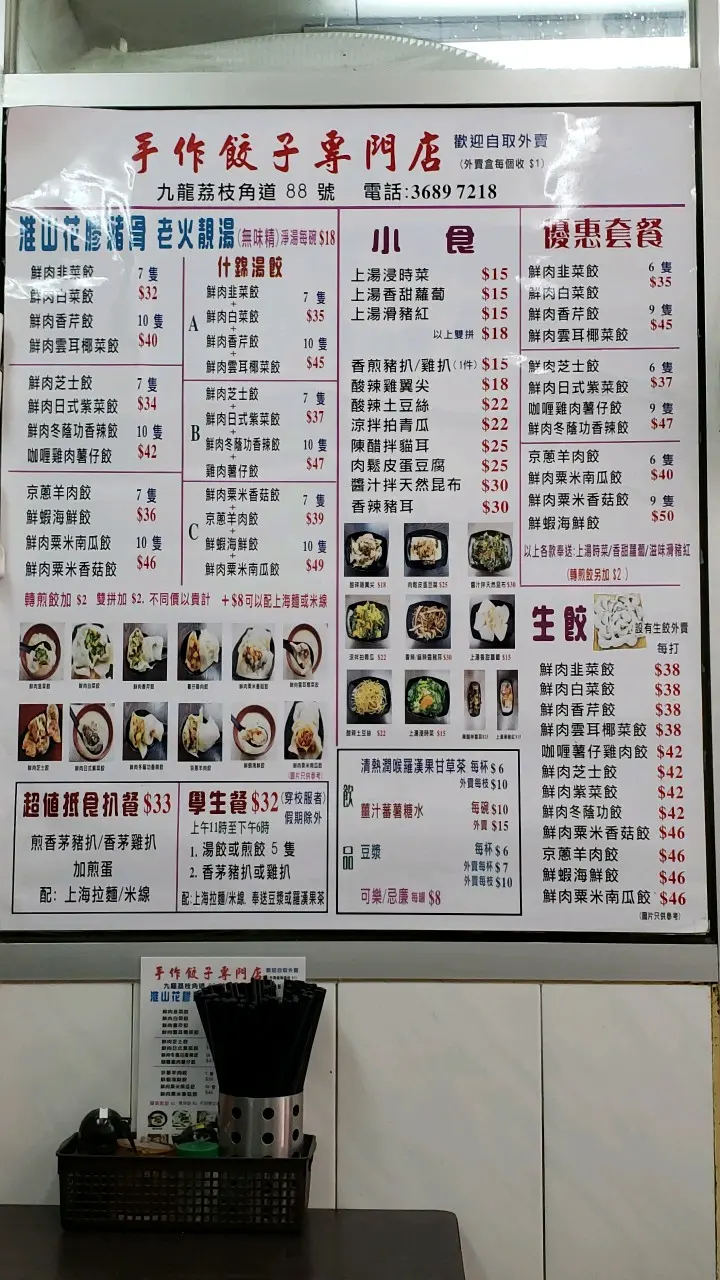 手作餃子專門店 歡迎自取外賣
(外賣盒每個收 $1)
九龍荔枝角道 88 號 電話:3689 7218
淮山花膠豬骨 老火靚湯(無味精)淨湯每碗 $18
鮮肉韭菜餃 7 隻
鮮肉白菜餃 $32
鮮肉香芹餃 10 隻
鮮肉雲耳椰菜餃 $40
鮮肉芝士餃 7 隻
鮮肉日式紫菜餃 $34
鮮肉冬蔭功香辣餃 10 隻
咖喱雞肉薯仔餃 $42
京蔥羊肉餃 7 隻
鮮蝦海鮮餃 $36
鮮肉粟米南瓜餃 10 隻
鮮肉粟米香菇餃 $46
什錦湯餃
A
鮮肉韭菜餃 7 隻
+
鮮肉白菜餃 $35
+
鮮肉香芹餃 10 隻
+
鮮肉雲耳椰菜餃 $45
B
鮮肉芝士餃 7 隻
+
鮮肉日式紫菜餃 $37
+
鮮肉冬蔭功香辣餃 10 隻
+
雞肉薯仔餃 $47
C
鮮肉粟米香菇餃 7 隻
+
京蔥羊肉餃 $39
+
鮮蝦海鮮餃 10 隻
+
鮮肉粟米南瓜餃 $49
轉煎餃加 $2 雙拼加 $2, 不同價以貴計 +$8可以配上海麵或米線
鮮肉韭菜餃 鮮肉白菜餃 鮮肉香芹餃
鮮肉芝士餃 鮮肉日式紫菜餃 鮮肉冬蔭功香辣餃 京蔥羊肉餃 鮮蝦海鮮餃 鮮肉粟米南瓜餃
(圖片只供參考)
超值抵食扒餐 $33
煎香茅豬扒/香茅雞扒
加煎蛋
配: 上海拉麵/米線
學生餐 $32 (穿校服者)
上午11時至下午6時 假期除外
1. 湯餃或煎餃 5 隻
2. 香茅豬扒或雞扒
配:上海拉麵/米線, 奉送豆漿或羅漢果茶
小食
上湯浸時菜 $15
上湯香甜蘿蔔 $15
上湯滑豬紅 $15
以上雙拼 $18
香煎豬扒/雞扒(1件) $15
酸辣雞翼尖 $18
酸辣土豆絲 $22
涼拌拍青瓜 $22
陳醋拌貓耳 $25
肉鬆皮蛋豆腐 $25
醬汁拌天然昆布 $30
香辣豬耳 $30
酸辣雞翼尖 $18 肉鬆皮蛋豆腐 $25 醬汁拌天然昆布 $30
涼拌拍青瓜 $22 上湯香甜蘿蔔 $15
酸辣土豆絲 $22 上湯浸時菜 $15
飲品
清熱潤喉羅漢果甘草茶 每杯 $6
外賣每枝 $10
薑汁蕃薯糖水 每碗 $10
外賣 $15
豆漿 每杯 $6
外賣每杯 $7
外賣每枝 $10
可樂/忌廉 每罐 $8
優惠套餐
鮮肉韭菜餃 6 隻
鮮肉白菜餃 $35
鮮肉香芹餃 9 隻
鮮肉雲耳椰菜餃 $45
鮮肉芝士餃 6 隻
鮮肉日式紫菜餃 $37
咖喱雞肉薯仔餃 9 隻
鮮肉冬蔭功香辣餃 $47
京蔥羊肉餃 6 隻
鮮肉粟米南瓜餃 $40
鮮肉粟米香菇餃 9 隻
鮮蝦海鮮餃 $50
以上各款奉送:上湯時菜/香甜蘿蔔/滋味滑豬紅
(轉煎餃另加 $2 )
生餃 設有生餃外賣
每打
鮮肉韭菜餃 $38
鮮肉白菜餃 $38
鮮肉香芹餃 $38
鮮肉雲耳椰菜餃 $38
咖喱薯仔雞肉餃 $42
鮮肉芝士餃 $42
鮮肉紫菜餃 $42
鮮肉冬蔭功餃 $42
鮮肉粟米香菇餃 $46
京蔥羊肉餃 $46
鮮蝦海鮮餃 $46
鮮肉粟米南瓜餃 $46
(圖片只供參考)
手作餃子專門店 歡迎自取外賣
九龍荔枝角道 88
淮山花膠